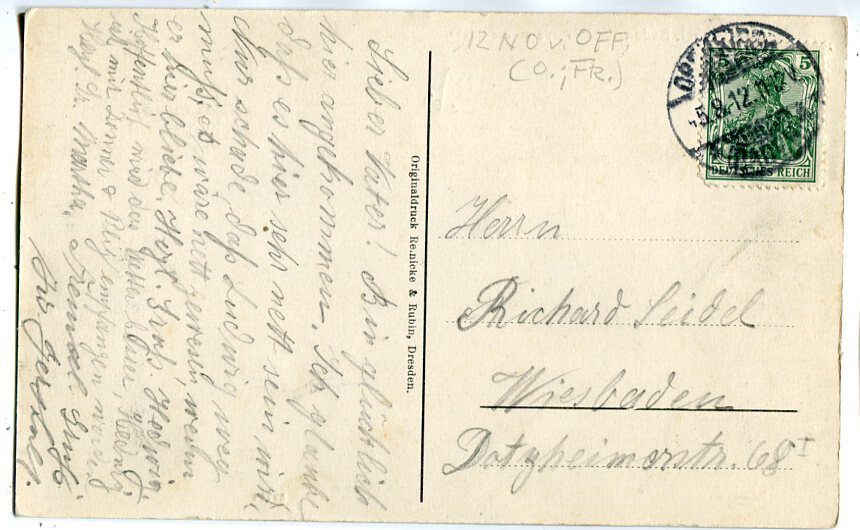 Lieber Vater! Bin glücklich
hier angekommen. Ich glaube
daß es hier sehr nett sein wird.
Nur schade, daß Ludwig weg
muß, es wäre nett gewesen, wenn
er hier bliebe. Herzl. Gruß Hedwig.
mit den
ist mir empfangen worden
Herzl. Gr. Martha.
Gruß
Originaldruck Reinicke & Rubin, Dresden.
12 NOV. OFF.
(O.; FR.)
5 5
DEUTSCHES REICH
5.8.12.
Herrn
Richard Seidel
Wiesbaden
Dotzheimerstr. 68 I